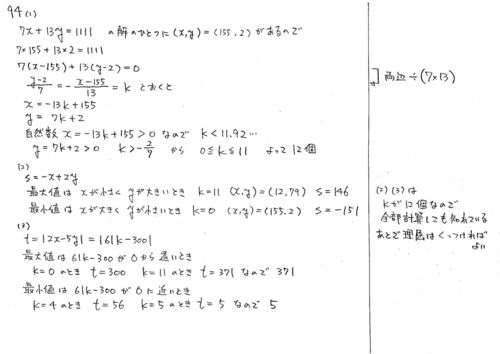 94(1)
7x+13y=1111 の解のひとつに(x,y)=(155,2)があるので
7×155+13×2=1111
7(x-155)+13(y-2)=0
(y-2)/7=-(x-155)/13=k とおくと
両辺÷(7×13)
x=-13k+155
y=7k+2
自然数 x=-13k+155>0 なので k<11.92…
y=7k+2>0 k>-2/7 から 0≦k≦11 よって12個
(2)
s=-x+2y
最大値は xが小さく yが大きいとき k=11 (x,y)=(12,79) s=146
最小値は xが大きく yが小さいとき k=0 (x,y)=(155,2) s=-151
(2)(3)は
kが12個なので
全部計算しても知れている
あとで理屈はくっつければ
よい
(3)
t=|2x-5y|=|61k-300|
最大値は61k-300が0から遠いとき
k=0のとき t=300 k=11のとき t=371 なので 371
最小値は61k-300が0に近いとき
k=4のとき t=56 k=5のとき t=5 なので 5